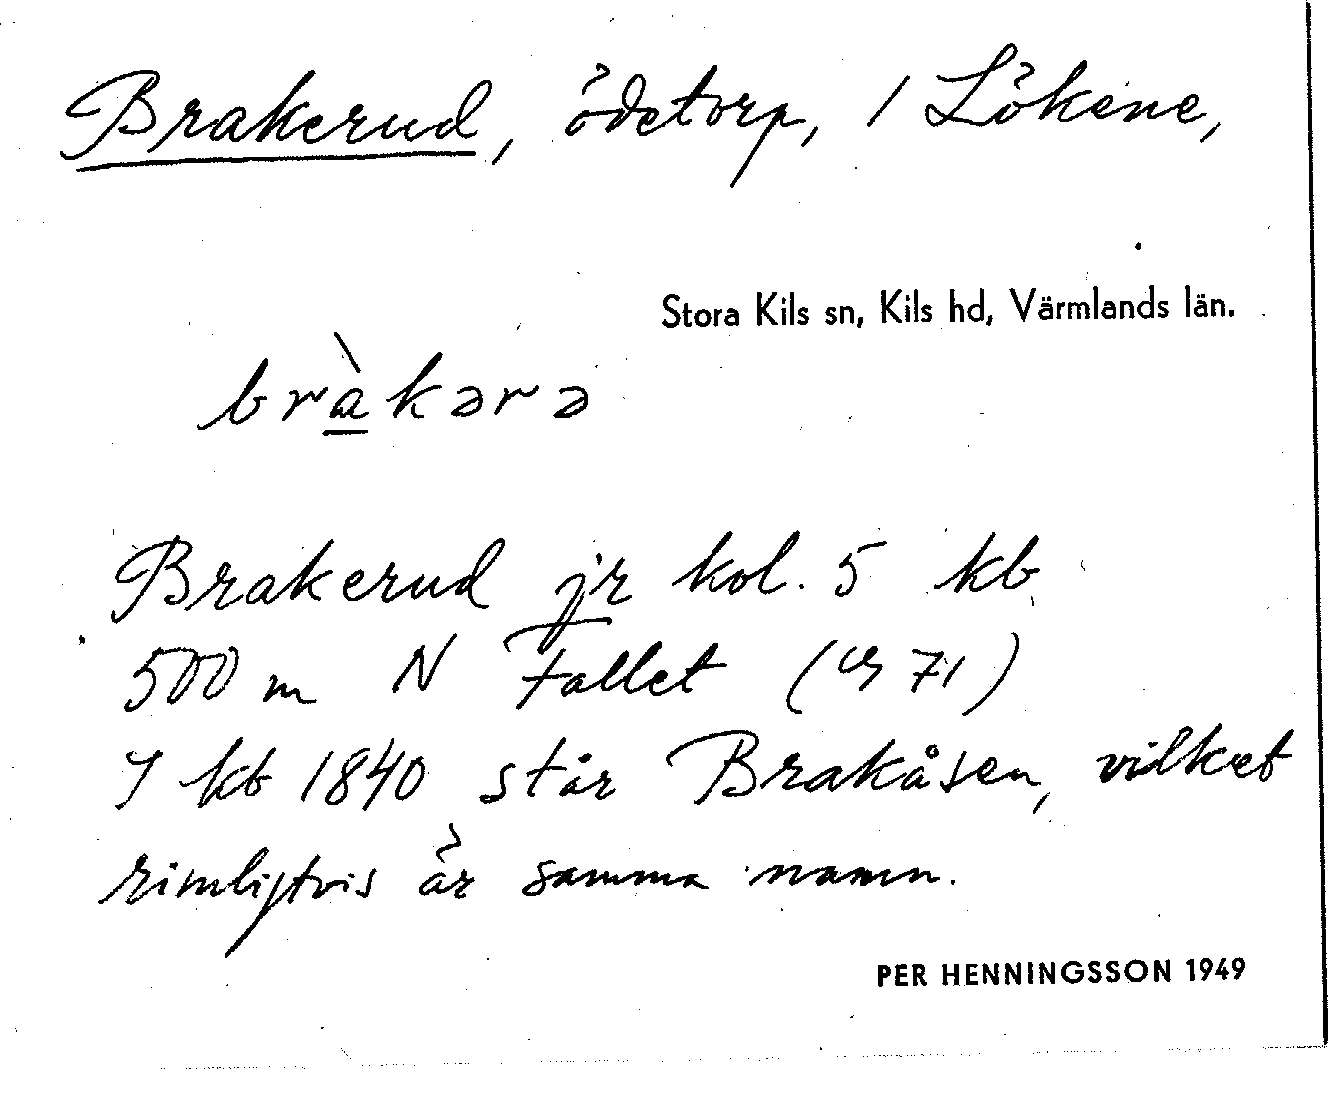 Brakerud, ödetorp, 1 Lökene,
Stora Kils sn, Kils hd, Värmlands län.
bràkərə
Brakerud jr kol. 5 kb
500 m N Fallet (cg 71)
I kb 1840 står Brakåsen, vilket
rimligtvis är samma namn.
PER HENNINGSSON 1949